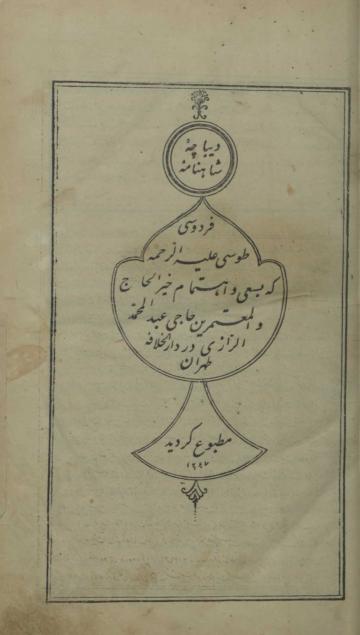 دیباچهٔ
شاهنامه
فردوسی
طوسی علیه الرحمه
که بسعی و اهتمام خیر الحاج
و المعتمرین حاجی عبد المحمد
الرازی در دار الخلافه
طهران
مطبوع گردید